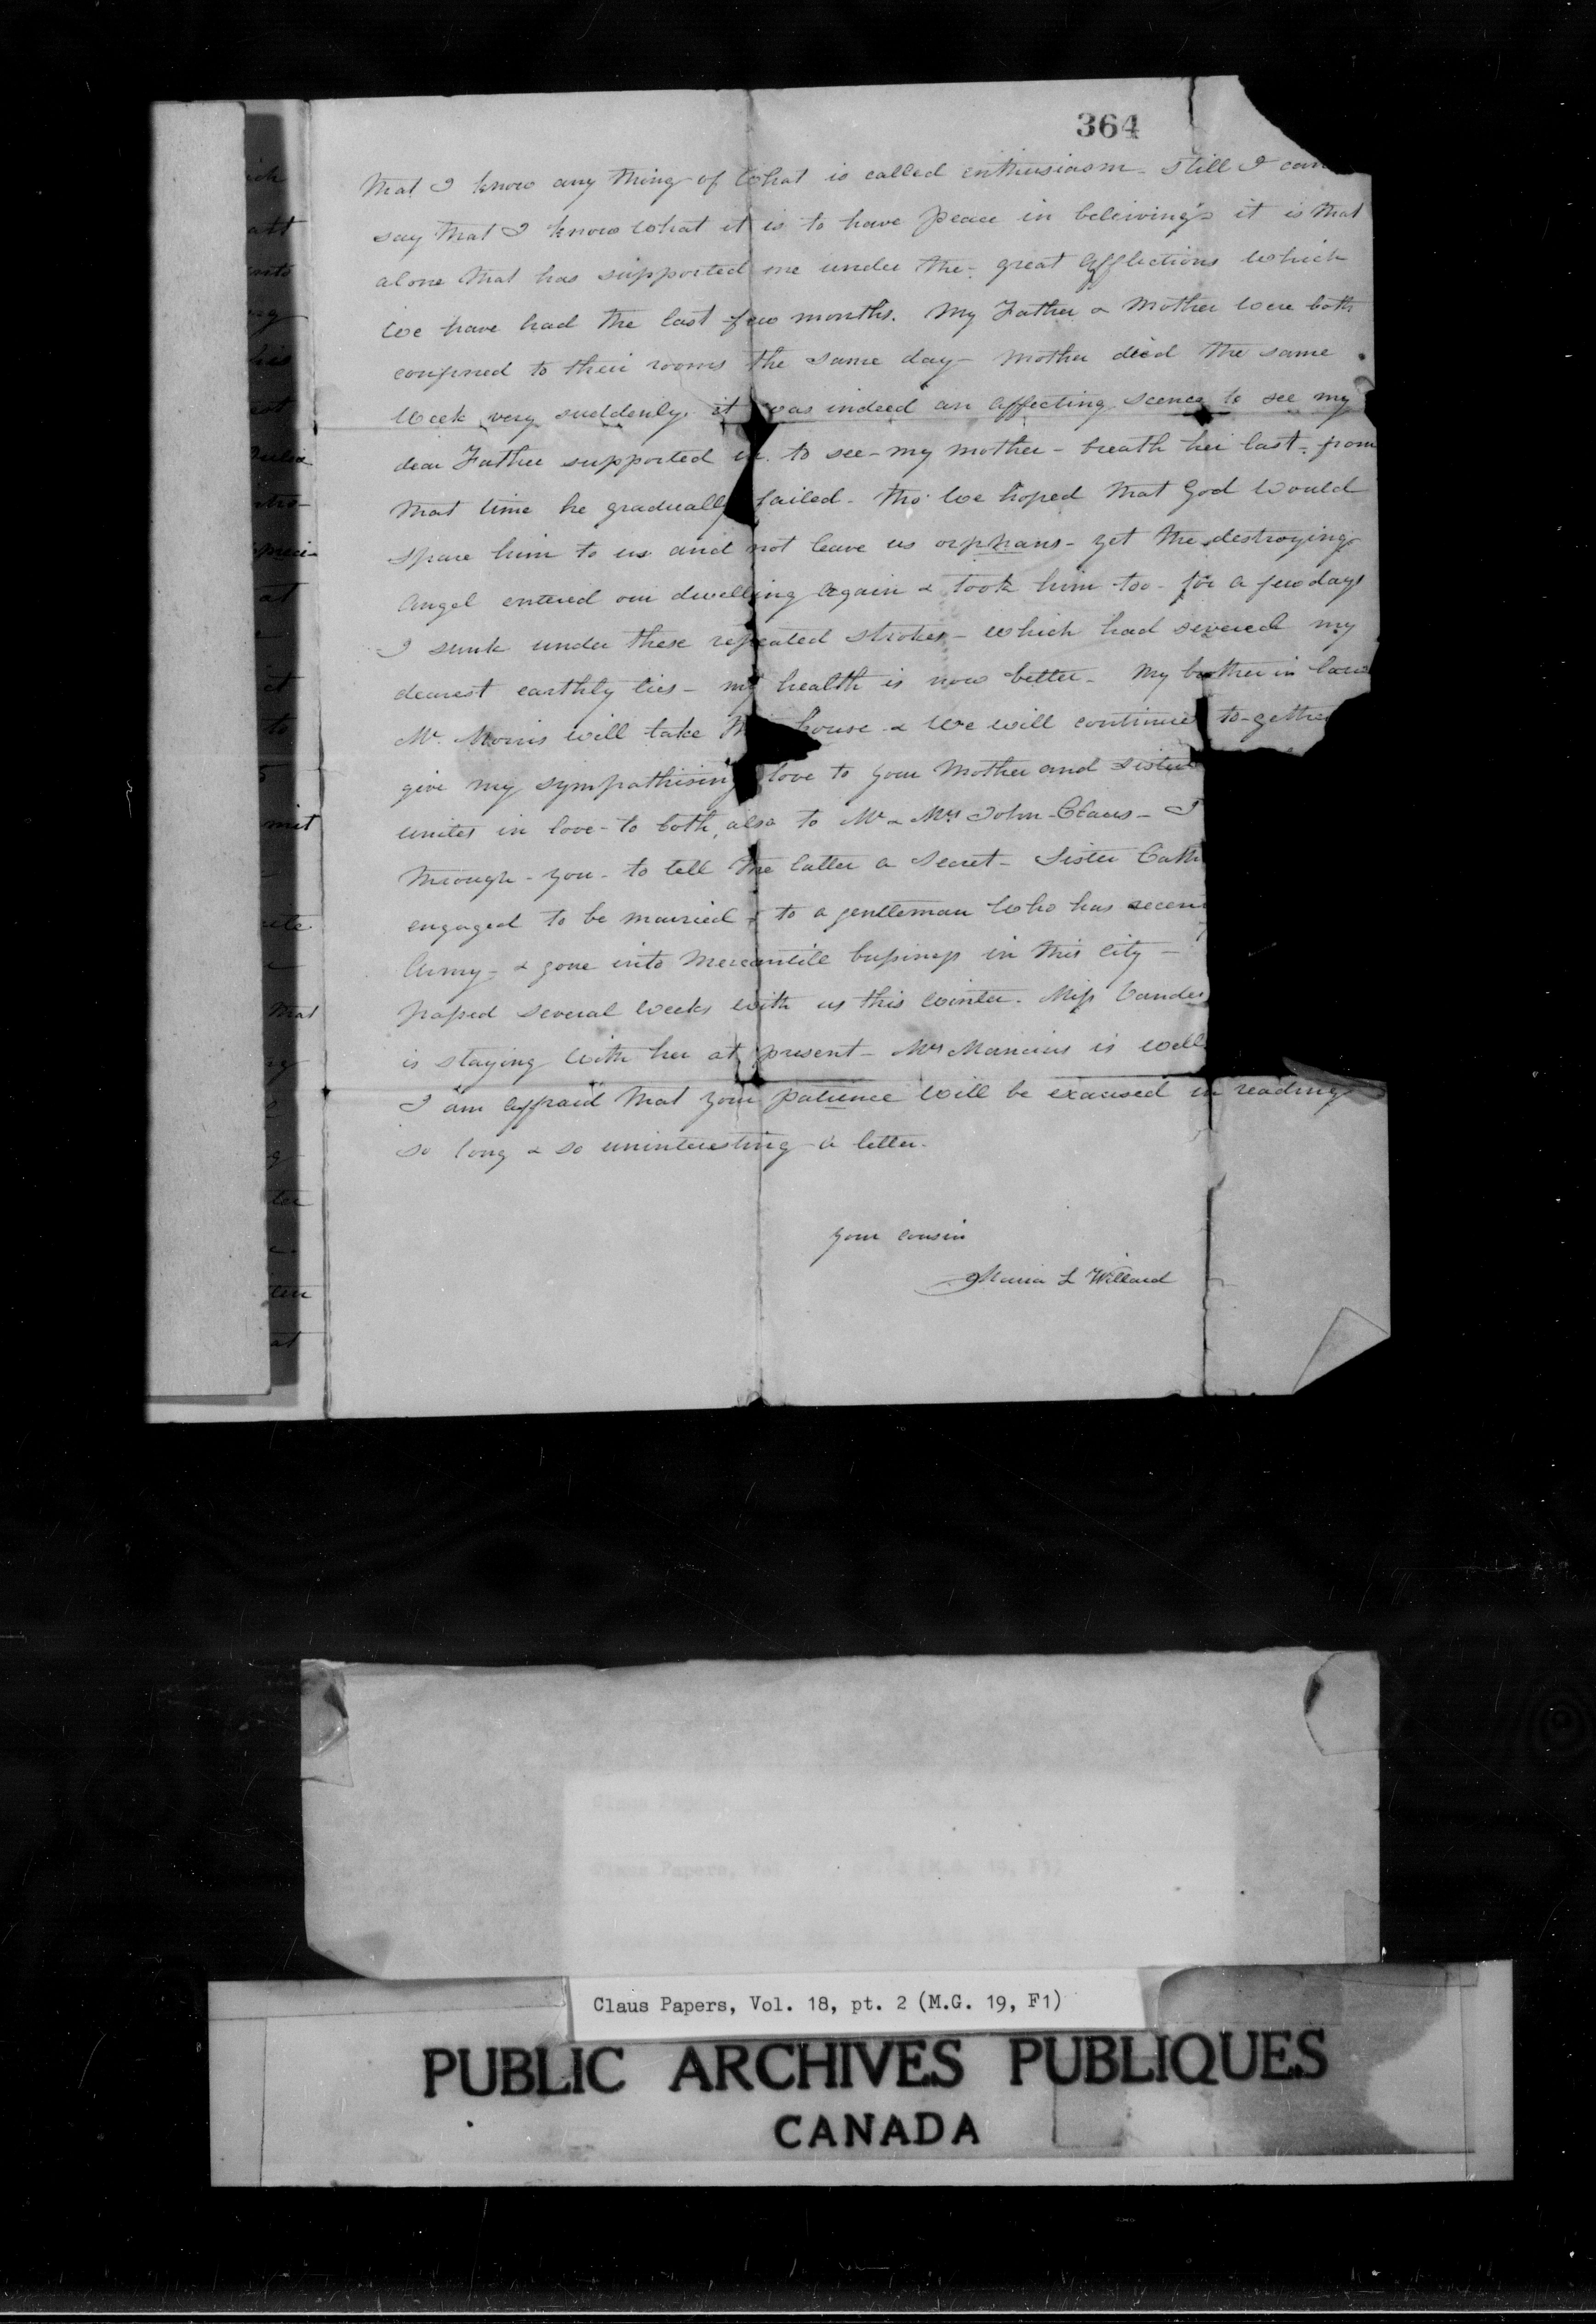 364
that I know any thing of what is called enthusiasm - still I can
say that I know what it is to have peace in beleiving & it is that
alone that has supported me under the - great afflictions which
we have had the last few months. My Father & Mother were both
confined to their rooms the same day - Mother died the same
week very suddenly. it was indeed an affecting scence to see my
dear Father supported in. to see - my mother - breath her last - from
that time he gradually failed - tho' we hoped that God would
spare him to us and not leave us orphans - yet the destroying
Angel entered our dwelling again & took him too - for a few days
I sunk under these repeated strokes - which had severed my
dearest earthly ties - my health is now better - My brother in law
Mr. Morris will take house & we will continue to-gether
give my sympathising love to your Mother and Sister
unites in love - to both, also to Mr & Mrs John - Claus - I
through - you - to tell the latter a secret - Sister Cath
engaged to be married & to a gentleman who has recen
Army - & gone into Mercantile bussiness in this City -
passed several weeks with us this winter. Miss Vander
is staying with her at present - Mrs Mancius is well
I am affraid that your patience will be exaused in reading
so long & so uninteresting a letter.
your cousin
Maria L Willard
ich
att
ents
ng
his
est
at
it
to
mit
that
ng
g
ter
ten
at
Claus Papers, Vol. 18, pt. 2 (M.G. 19, F1)
PUBLIC ARCHIVES PUBLIQUES
CANADA